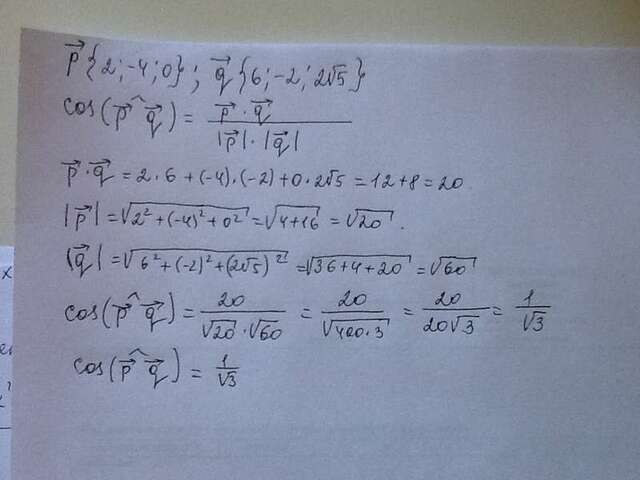 p⃗ {2; -4; 0}; q⃗ {6; -2; 2√5}
cos(p⃗ ^ q⃗) = p⃗ · q⃗ / |p⃗| · |q⃗|
p⃗ · q⃗ = 2 · 6 + (-4) · (-2) + 0 · 2√5 = 12 + 8 = 20
|p⃗| = √(2² + (-4)² + 0²) = √(4+16) = √20.
|q⃗| = √(6² + (-2)² + (2√5)²) = √(36+4+20) = √60
cos(p⃗ ^ q⃗) = 20 / √20 · √60 = 20 / √(400·3) = 20 / 20√3 = 1 / √3
cos(p⃗ ^ q⃗) = 1 / √3